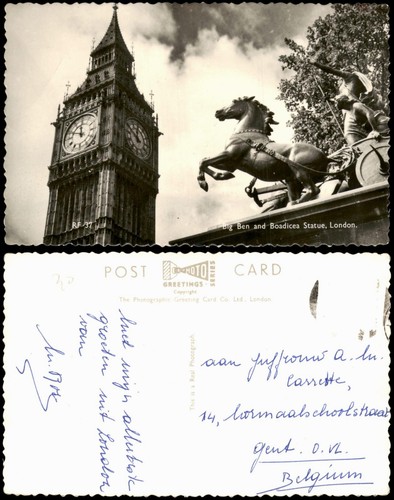 RF 37
Big Ben and Boadicea Statue, London.
POST CARD
PHOTO
GREETINGS
SERIES
Copyright
The Photographic Greeting Card Co. Ltd., London.
This is a Real Photograph
Met mijn allerbeste
groeten uit London
van
aan Juffrouw A. M.
Cassette,
14, Normaalschoolstraat
Gent. O. VL.
Belgium